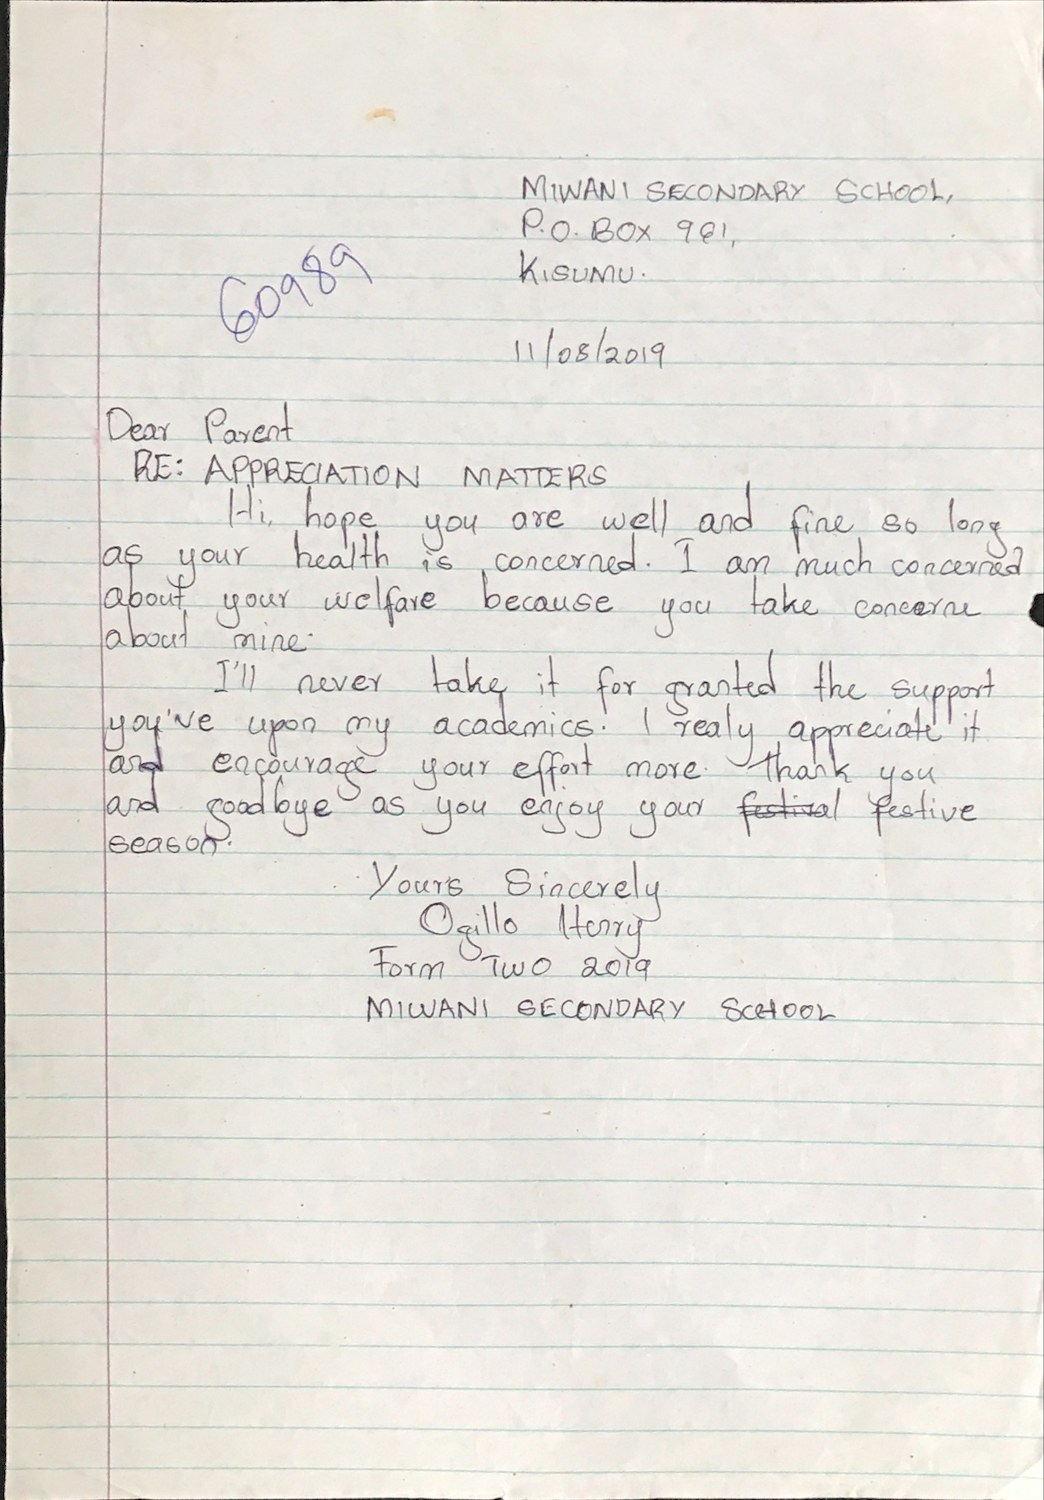 MIWANI SECONDARY SCHOOL,
P.O. BOX 961,
KISUMU.
60989
11/08/2019
Dear Parent
RE: APPRECIATION MATTERS
Hi, hope you are well and fine so long
as your health is concerned. I am much concerned
about your welfare because you take concerne
about mine.
I'll never take it for granted the support
you've upon my academics. I realy appreciate it
and encourage your effort more. Thank you
and goodbye as you enjoy your festival festive
season.
Yours Sincerely
Ogillo Henry
Form Two 2019
MIWANI SECONDARY SCHOOL